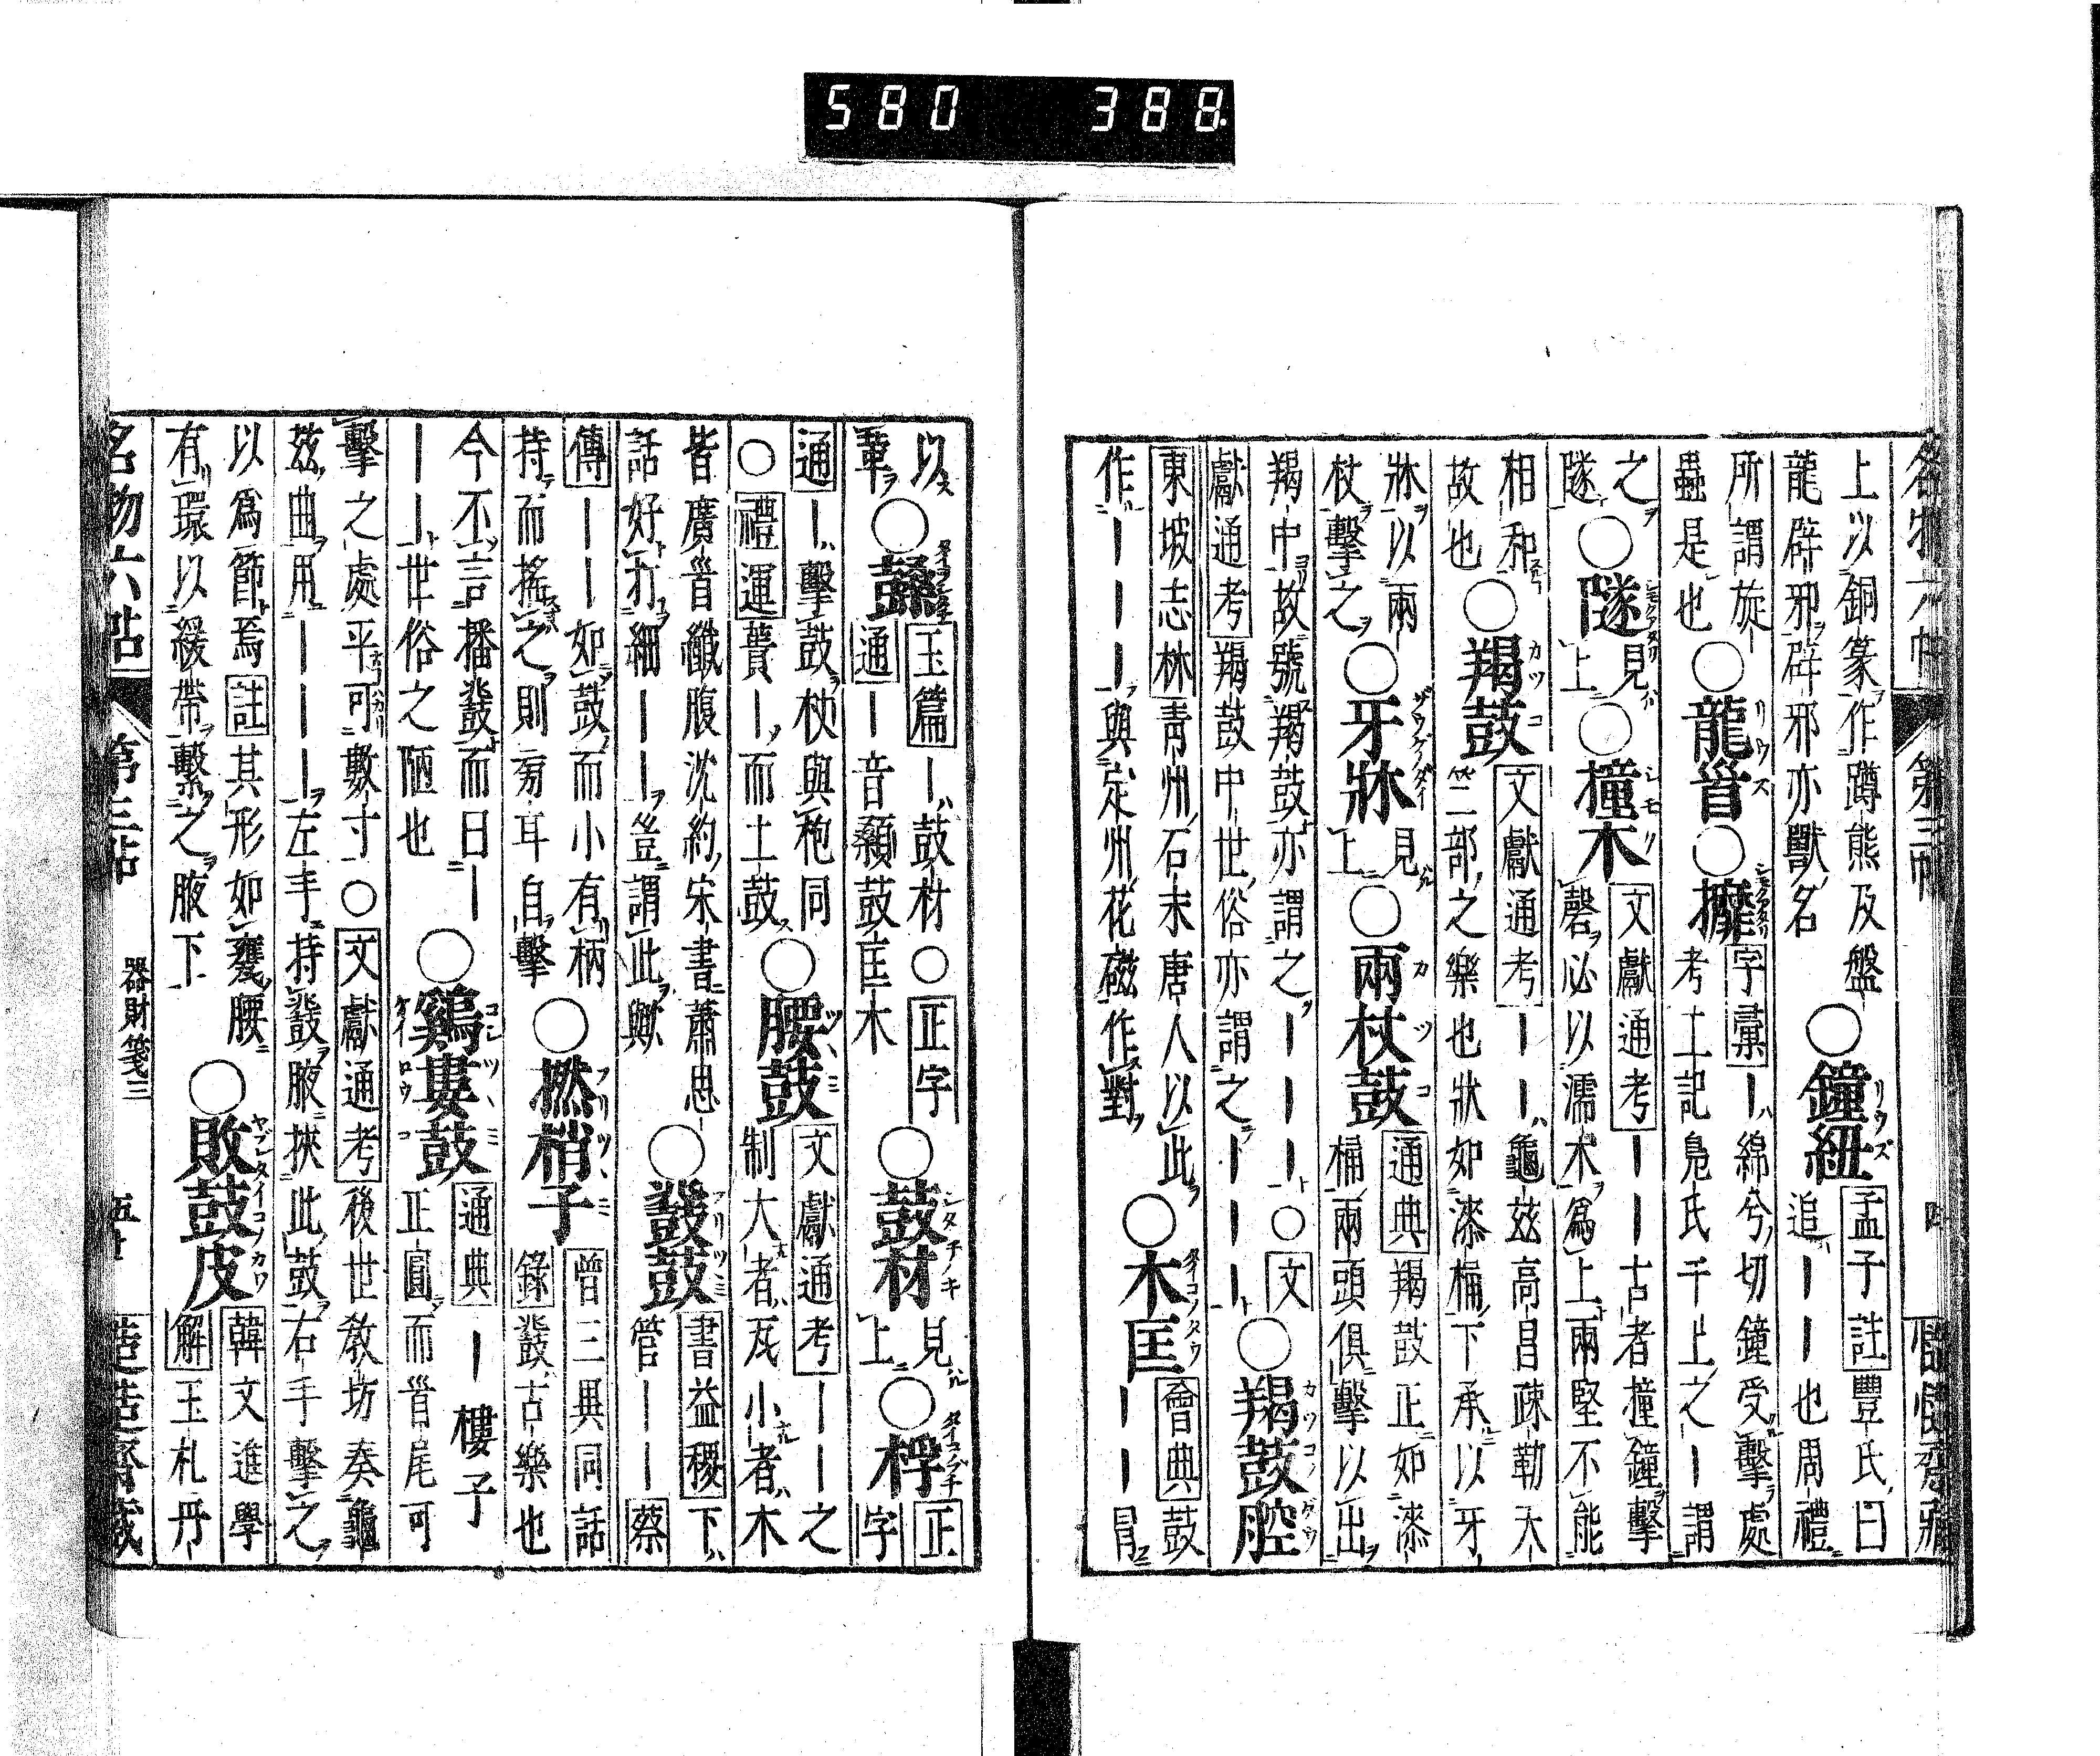 580 388
名物六帖 第三帖
上以銅篆作蹲熊及盤
龍辟邪辟邪亦獸名
○鐘紐 リウズ
孟子註豐氏曰
追｜｜也周禮
所謂旋
蟲是也
○龍首 リウズ
○攠
字彙｜綿兮切鐘受擊處
考工記鳧氏于上之｜謂
之
隧
○隧
見上
○撞木 シモク
文獻通考｜｜古者撞鐘擊
磬必以濡木爲上兩堅不能
相和
故也
○羯鼓 カツコ
文獻通考｜｜龜茲高昌疎勒天
竺二部之樂也狀如漆桶下承以牙
牀以兩
杖擊之
○牙牀
見上
○兩杖鼓 カツコ
通典羯鼓正如漆
桶兩頭俱擊以出
羯中故號羯鼓亦謂之｜｜｜○文
獻通考羯鼓中世俗亦謂之｜｜｜
○羯鼓腔 カツコノダウ
東坡志林青州石末唐人以此
作｜｜｜與定州花磁作對
○木匡 タイコノタウ
會典鼓
｜｜冒
以
革
○鼛
玉篇｜鼓材○正字
通｜音顙鼓匡木
○鼓材
見上
○桴
正字
通｜擊鼓杖與枹同
○禮運蕢｜而土鼓
○腰鼓 ツヽミ
文獻通考｜｜之
制大者瓦小者木
皆廣首纖腹沈約宋書蕭思
話好打細｜｜豈謂此歟
○鼗鼓 フリツヾミ
書益稷下
管｜｜蔡
傳｜｜如鼓而小有柄
持而搖之則旁耳自擊
○撚梢子 フリツヽミ
曾三異同話
錄鼗古樂也
今不言播鼗而曰｜
｜｜世俗之陋也
○鷄婁鼓
通典｜樓子
正圓而首尾可
擊之處平可數寸○文獻通考後世教坊奏龜
茲曲用｜｜｜左手持鼗腋挾此鼓右手擊之
以爲節焉註其形如甕腰
有環以綬帶繫之腋下
○敗鼓皮 ヤブレタイコノカワ
韓文進學
解玉札丹
名物六帖 第三帖 器財箋三